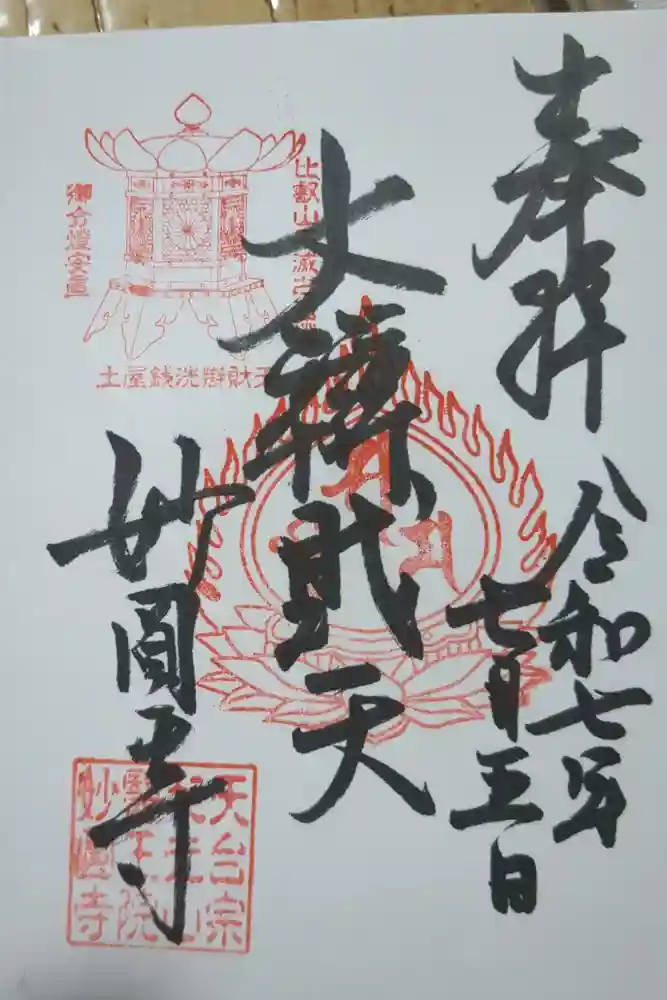 奉拝
令和七年
七月五日
大辨財天
妙圓寺
比叡山
御分燈安置
土屋銭洗辨財天
天台宗
王山
醫王院
妙圓寺